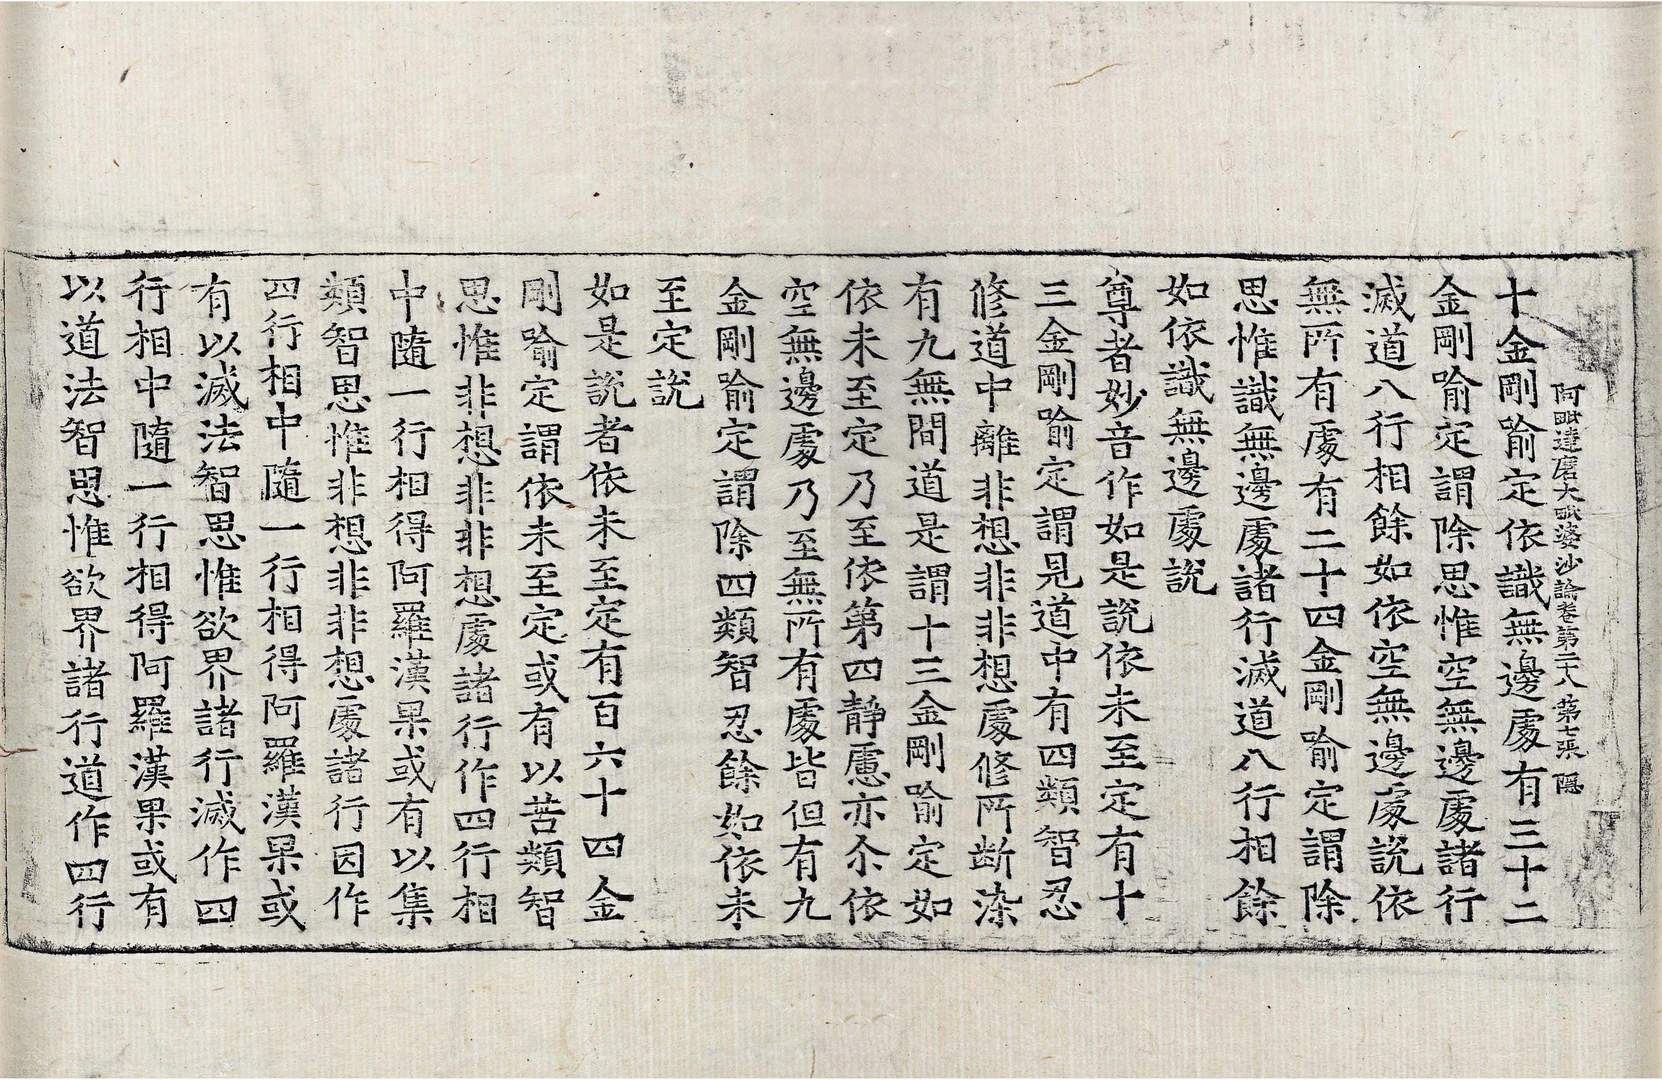 阿毗達磨大毗婆沙論卷第二十八 第七張 隱
十金剛喻定依識無邊處有三十二
金剛喻定謂除思惟空無邊處諸行
滅道八行相餘如依空無邊處說依
無所有處有二十四金剛喻定謂除
思惟識無邊處諸行滅道八行相餘
如依識無邊處說
尊者妙音作如是說依未至定有十
三金剛喻定謂見道中有四類智忍
修道中離非想非非想處修所斷染
有九無間道是謂十三金剛喻定如
依未至定乃至依第四靜慮亦尒依
空無邊處乃至無所有處皆但有九
金剛喻定謂除四類智忍餘如依未
至定說
如是說者依未至定有百六十四金
剛喻定謂依未至定或有以苦類智
思惟非想非非想處諸行作四行相
中隨一行相得阿羅漢果或有以集
類智思惟非想非非想處諸行因作
四行相中隨一行相得阿羅漢果或
有以滅法智思惟欲界諸行滅作四
行相中隨一行相得阿羅漢果或有
以道法智思惟欲界諸行道作四行